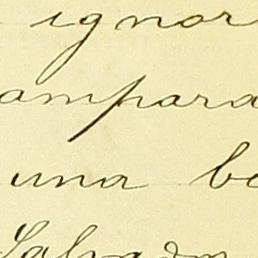 ignor
ampara
una be
Salvador